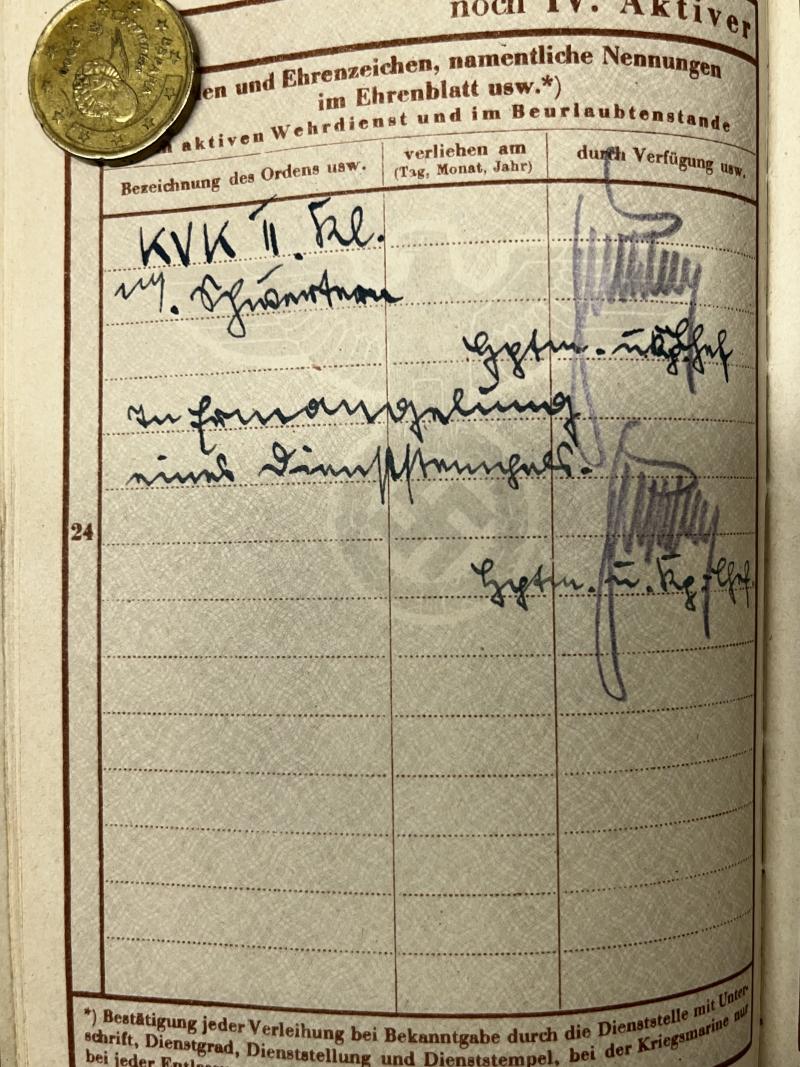 noch IV. Aktiver
en und Ehrenzeichen, namentliche Nennungen
im Ehrenblatt usw.*)
aktiven Wehrdienst und im Beurlaubtenstande
Bezeichnung des Ordens usw.
verliehen am
(Tag, Monat, Jahr)
durch Verfügung usw.
KVK II. Kl.
m. Schwertern
Hptm. u. Kp. Chef
In Ermangelung
eines Dienststempels.
Hptm. u. Kp. Chef.
24
*) Bestätigung jeder Verleihung bei Bekanntgabe durch die Dienststelle mit Unter-
schrift, Dienstgrad, Dienststellung und Dienststempel, bei der Kriegsmarine nur
bei jeder